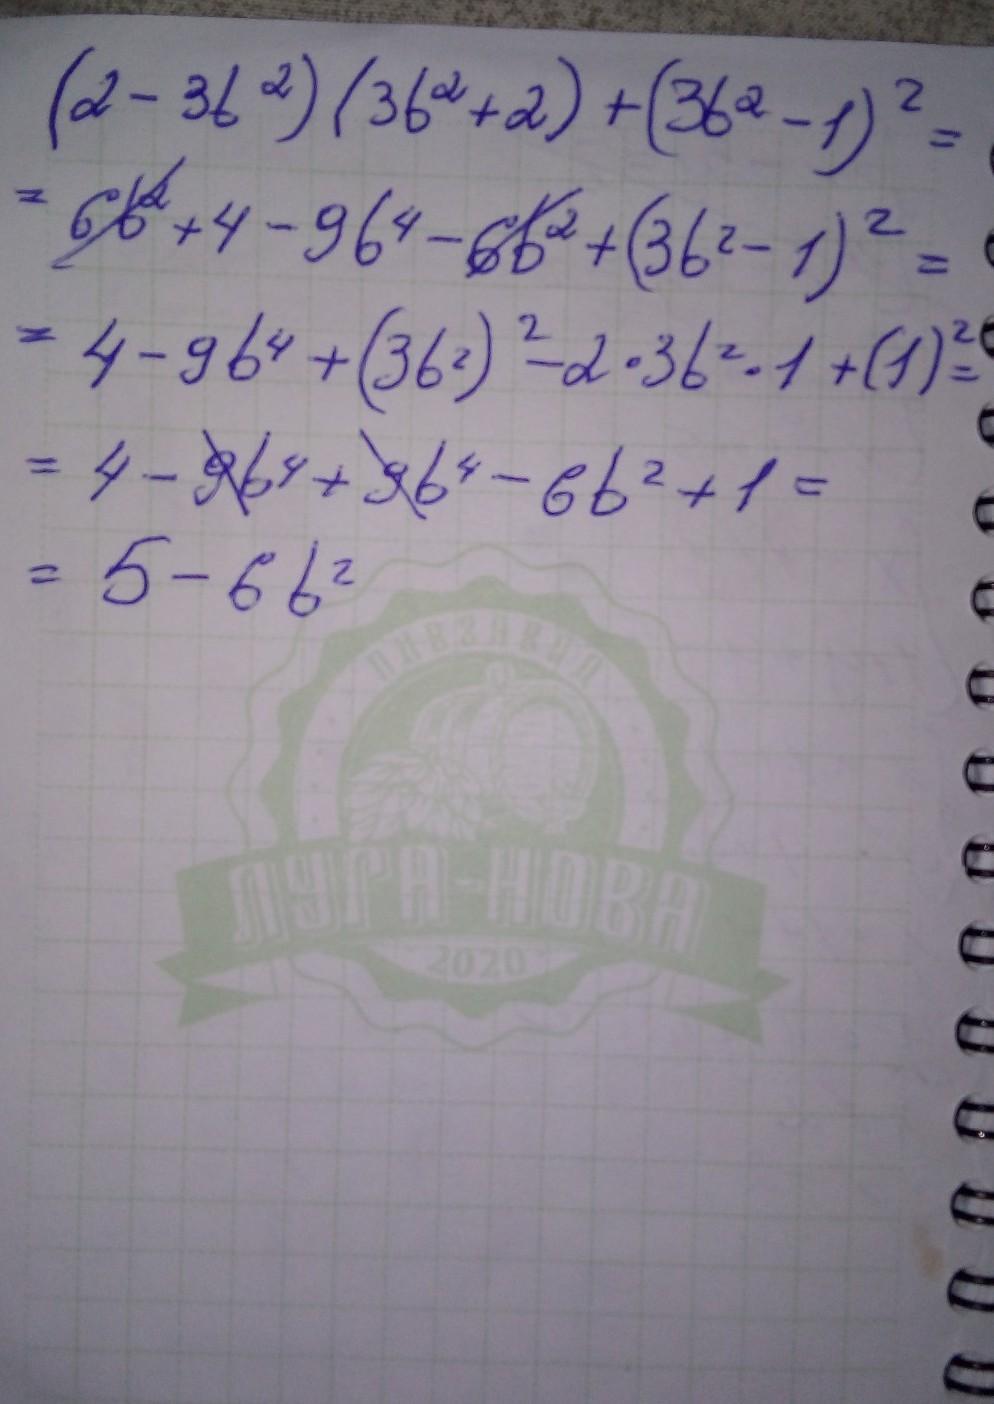 (2 - 3b²)(3b² + 2) + (3b² - 1)² =
= 6b² + 4 - 9b⁴ - 6b² + (3b² - 1)² =
= 4 - 9b⁴ + (3b²)² - 2 · 3b² · 1 + (1)² =
= 4 - 9b⁴ + 9b⁴ - 6b² + 1 =
= 5 - 6b²
ПИВЗАВОД
ЛУГА-НОВА
2020